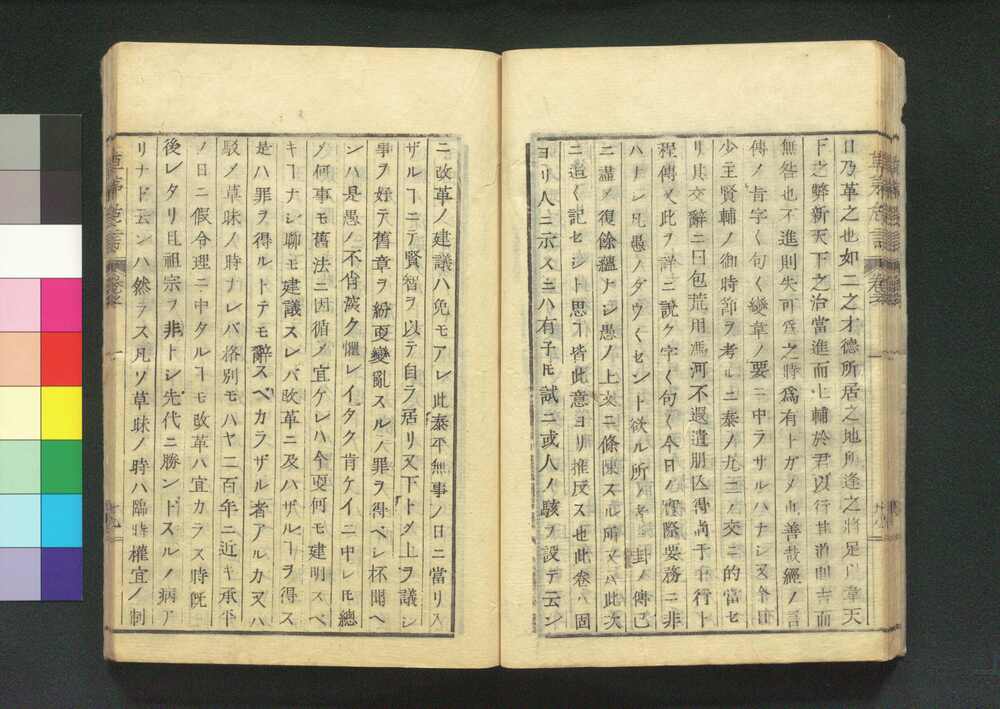 日乃革之也如二之才德所居之地所逢之將足以革天
下之弊新天下之治當進而上輔於君以行其道則吉而
無咎也不進則失可爲之時爲有咎矣善哉經ノ言
傳ノ旨字々句々變革ノ要ニ中ラサルハナシ又今日
少主賢輔ノ御時節ヲ考ルニ泰ノ九二ノ交ニ的當セ
リ其交辭ニ曰包荒用馮河不遐遺朋亡得尚于中行ト
程傳又此ヲ詳ニ說ク字々句々今日ノ實際要務ニ非
ハナシ凡愚ノダウ〱セント欲ル所ノ卦ノ傳已
ニ盡ス復餘蘊ナシ愚ノ上文ニ條陳スル所又バ此次
ニ追々記セシト思フ皆此意ヨリ推反ス也此卷ハ固
ヨリ人ニ示スニハ有子ドモ試ニ或人ノ駁ヲ設テ云ン
ニ改革ノ建議ハ免モアレ此泰平無事ノ日ニ當リ人
ザルヿニテ賢智ヲ以テ自ラ居リ又下トメ上ヲ議シ
事ヲ好テ舊章ヲ紛更變亂スルノ罪ヲ得ベシ杯聞ヘ
ンハ是愚ノ不肖深ク懼レイタク肯ケイニ中レ𪜈總
メ何事モ舊法ニ因循メ宜ケレハ今更何モ建明スベ
キヿナシ聊モ建議スレバ改革ニ及ハザルヿヲ得ス
是ハ罪ヲ得ルトテモ辭スベカラザル者アルカ又ハ
駁メ草昧ノ時ナレバ格別モハヤ二百年ニ近キ承平
ノ日ニ假令理ニ中タルヿモ改革ハ宜カラス時既
後レタリ且祖宗ヲ非トシ先代ニ勝ンドスルノ病ア
リナド云ンハ然ラス凡ソ草昧ノ時ハ臨時權宜ノ制